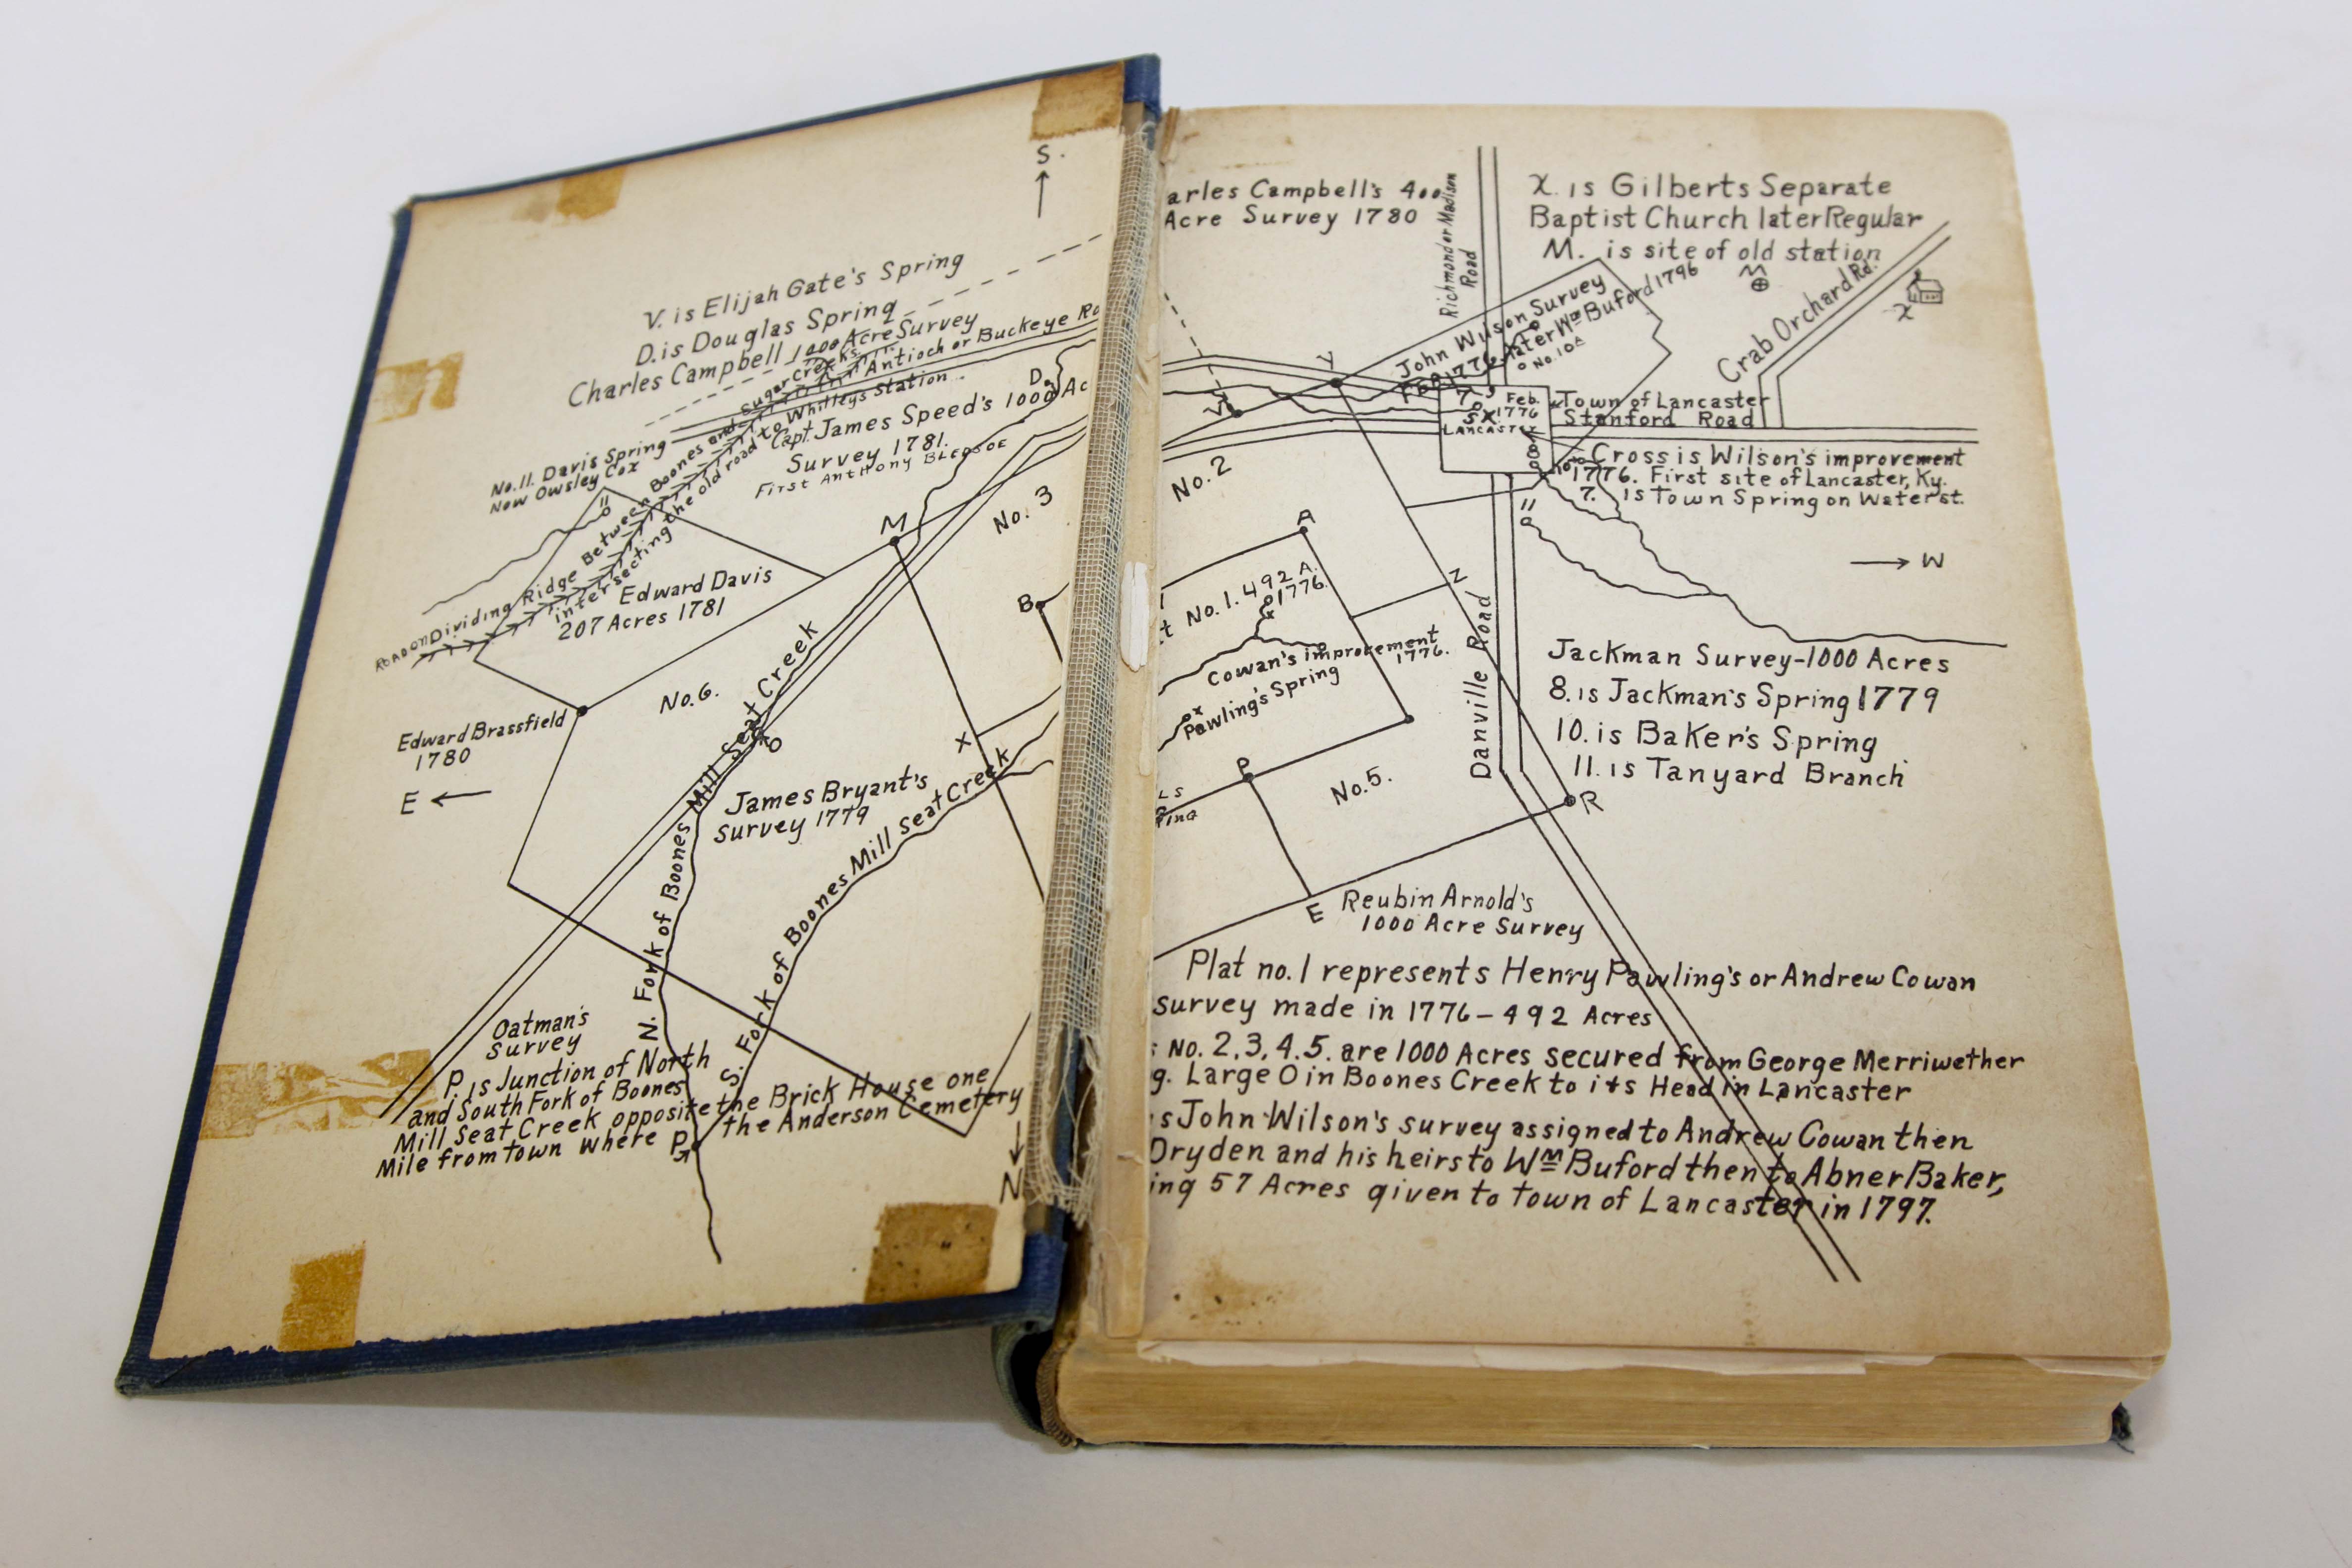 S.
V. is Elijah Gate's Spring
D. is Douglas Spring
Charles Campbell 1000 Acre Survey
Sugar Creeks
Antioch or Buckeye Ro
to Whitleys Station
D.
No. 11. Davis Spring
Now Owsley Cox
Capt. James Speed's 1000 Ac
Survey 1781.
First Anthony Bledsoe
11
M
No. 3
Road on Dividing Ridge Between Boones and
intersecting the old road
Edward Davis
207 Acres 1781
B
No. 6.
Edward Brassfield
1780
E
X
James Bryant's
Survey 1779
N. Fork of Boones Mill Seat Creek
S. Fork of Boones Mill Seat Creek
Oatman's
Survey
P. is Junction of North
and South Fork of Boones
Mill Seat Creek opposite the Brick House one
Mile from town where P. the Anderson Cemetery
N
arles Campbell's 400
Acre Survey 1780
Richmond or Madison
Road
X. is Gilberts Separate
Baptist Church later Regular
M. is site of old station
M
John Wilson Survey
Feb 1776 later Wm Buford 1796
No. 10A
Crab Orchard Rd.
X
Y
V
7
Feb.
1776
5 X
Lancaster
8
Town of Lancaster
Stanford Road
Cross is Wilson's improvement
1776. First site of Lancaster, Ky.
7. is Town Spring on Water st.
No. 2
11
W
A
Z
t No. 1. 492 A.
1776.
Cowan's improvement
1776.
Pawling's Spring
Danville Road
Jackman Survey-1000 Acres
8. is Jackman's Spring 1779
10. is Baker's Spring
11. is Tanyard Branch
P
No. 5.
R
LS
ring
E
Reubin Arnold's
1000 Acre Survey
Plat no. 1 represents Henry Pawling's or Andrew Cowan
survey made in 1776 – 492 Acres
s No. 2, 3, 4. 5. are 1000 Acres secured from George Merriwether
g. Large O in Boones Creek to its Head in Lancaster
s John Wilson's survey assigned to Andrew Cowan then
Dryden and his heirs to Wm Buford then to Abner Baker,
ing 57 Acres given to town of Lancaster in 1797.